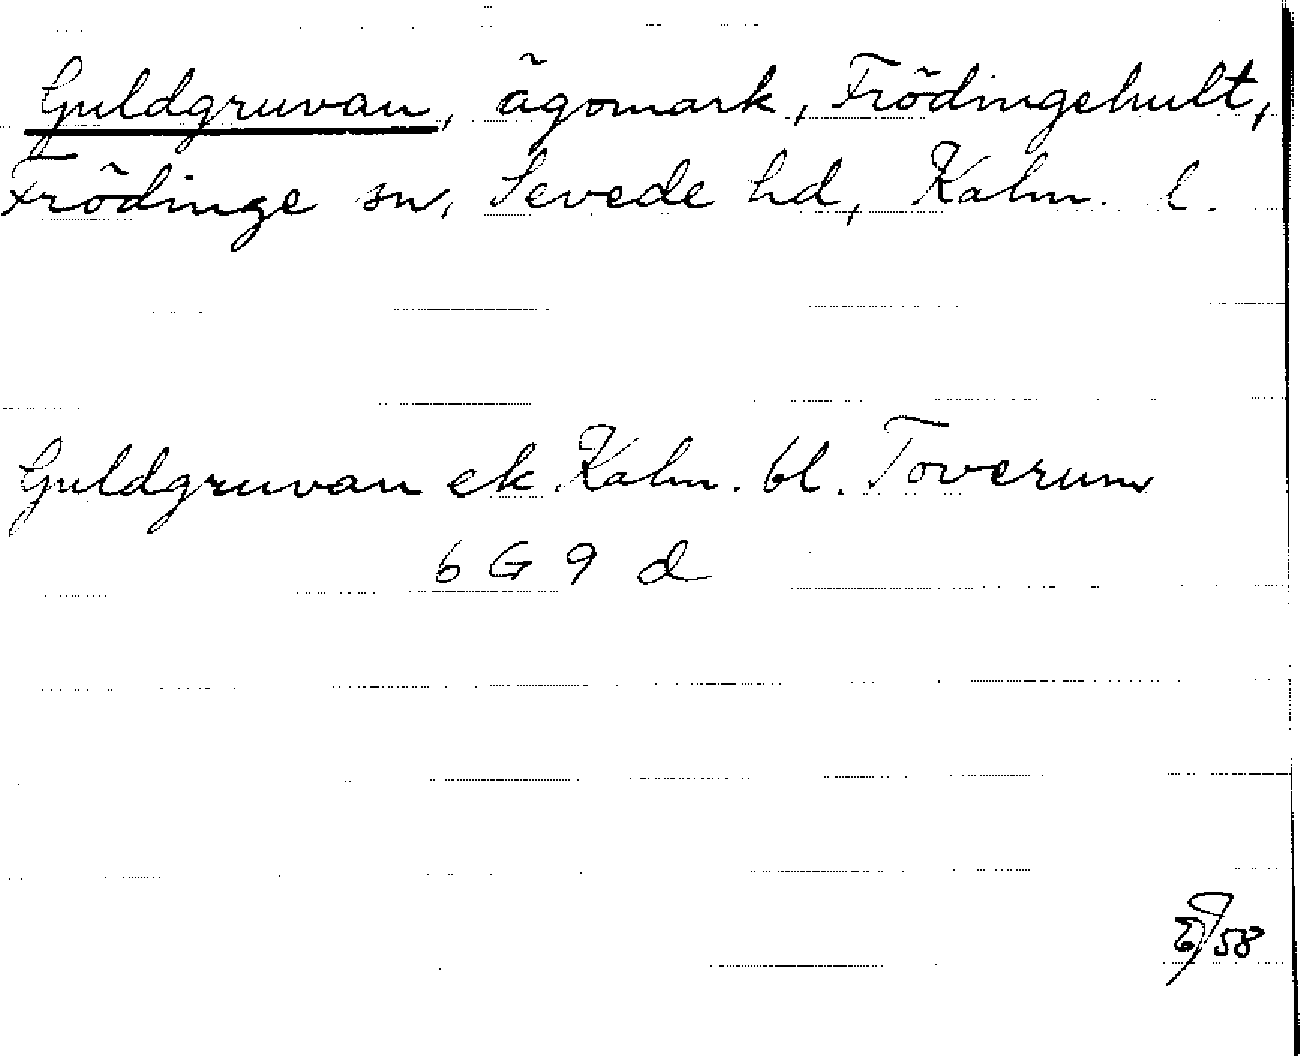 Guldgruvan, ägomark, Frödingehult,
Frödinge sn, Sevede hd, Kalm. l.
Guldgruvan ek Kalm. bl. Toverum
6 G 9 d
58